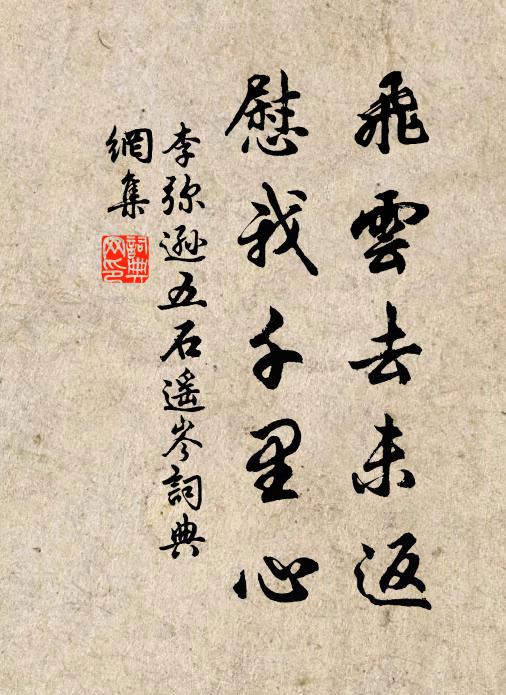 飛雲去未返
慰我千里心
李弥遜五石遥岑詞典
網集
詞典
网印